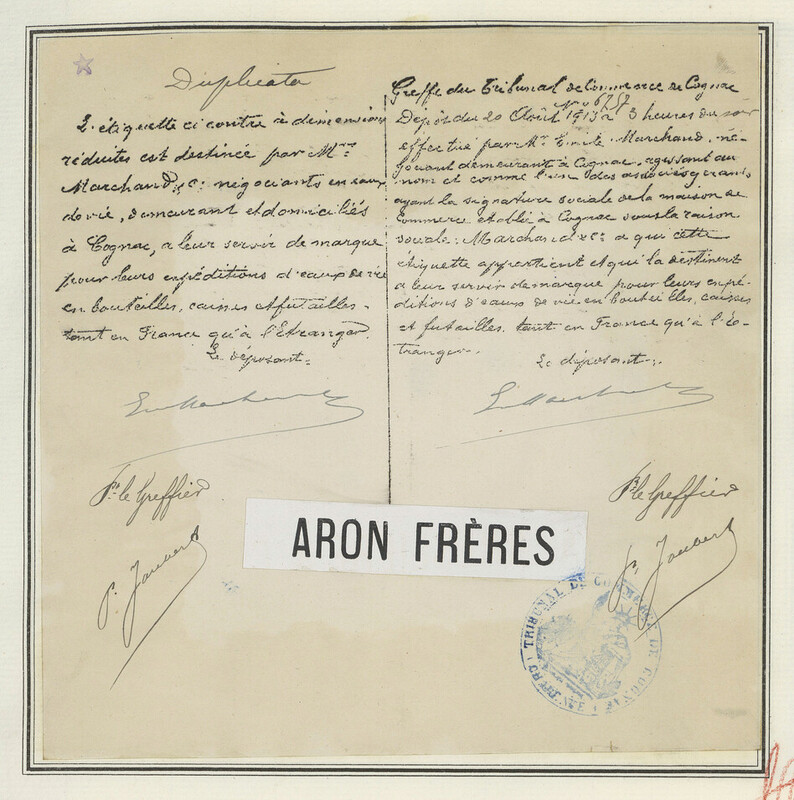 Duplicata
L'étiquette ci contre à dimensions
réduites est destinée par Mrs
Marchand & Cie négociants en eaux
de vie, demeurant et domiciliés
à Cognac, a leur servir de marque
pour leurs expéditions d'eaux de vie
en bouteilles, caisses et futailles
tant en France qu'à l'Etranger.
Le déposant.
Pr le Greffier
P. Joubert
Greffe du Tribunal de Commerce de Cognac
No 6757
Dépôt du 20 Août 1913 à 3 heures du soir
effectué par Mr Emile Marchand, né-
gociant demeurant à Cognac, agissant au
nom et comme l'un des associés gérants
ayant la signature sociale de la maison de
Commerce etablie à Cognac sous la raison
sociale: Marchand & Cie a qui cette
étiquette appartient et qui la destinent
a leur servir de marque pour leurs expé-
ditions d'eaux de vie en bouteilles, caisses
et futailles tant en France qu'à l'é-
tranger.
Le déposant.
Pr le Greffier
P. Joubert
ARON FRÈRES
TRIBUNAL DE COMMERCE DE COGNAC
CHARENTE